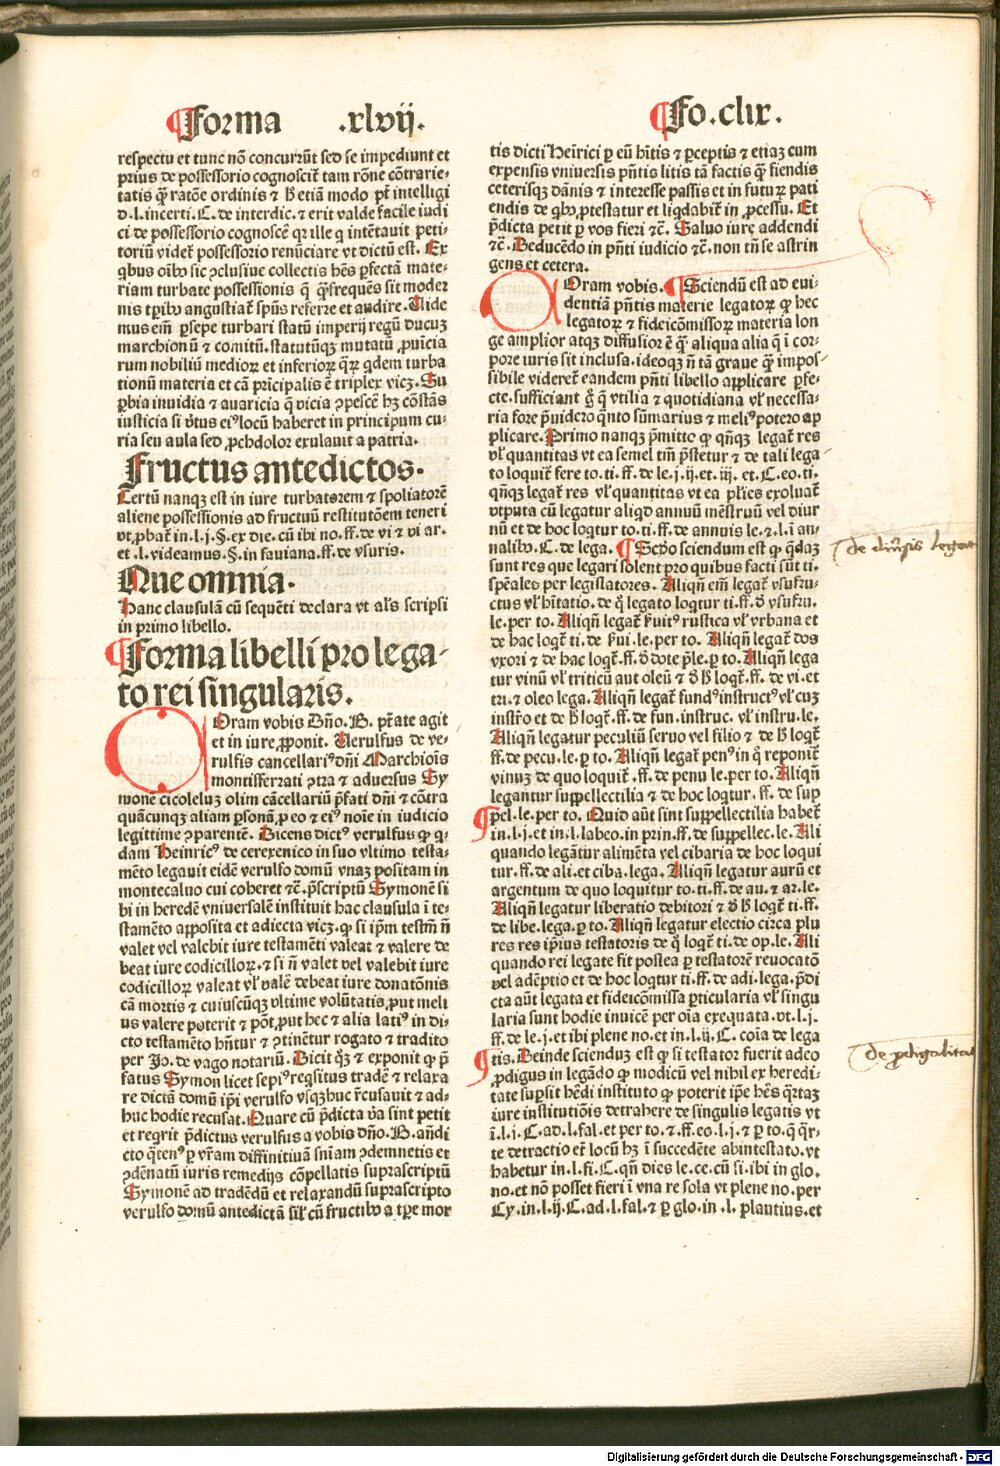 Forma .xlvij.
respectu et tunc nõ concurrũt sed se impediunt et
prius de possessorio cognoscit̃ tam rõne cõtrarie-
tatis q̃ ratõe ordinis ⁊ h̃ etiã modo pt̃ intelligi
d.l.incerti.C.de interdic.⁊ erit valde facile iudi
ci de possessorio cognoscẽ qr ille q intẽtauit peti-
toriũ videt̃ possessorio renũciare vt dictũ est. Ex
qbus oĩbꝰ sic ꝯclusiue collectis hẽs ꝑfectã mate-
riam turbate possessionis q̃ q̃frequẽs sit moder
nis tꝑibꝰ angustiat̃ spũs referre et audire. Uide
mus em̃ ꝑsepe turbari statũ imperij regũ ducuꝫ
marchionũ ⁊ comitũ.statutũqꝫ mutatũ ꝓuincia
rum nobiliũ medioꝝ et inferioꝝ q̃ꝝ qdem turba
tionũ materia et cã prĩcipalis ẽ triplex vicꝫ. Su
ꝑbia inuidia ⁊ auaricia q̃ vicia ꝯpescẽ hꝫ cõstãs
iusticia si ṽtus eiꝰ locũ haberet in principum cu-
ria seu aula sed ꝓchdolor exulauit a patria.
Fructus antedictos.
Certũ nanqꝫ est in iure turbatorem ⁊ spoliatorẽ
aliene possessionis ad fructuũ restitutõem teneri
vt ꝓbat̃ in.l.j.§.ex die.cũ ibi no.ff.de vi ⁊ vi ar.
et .l.videamus.§.in fauiana.ff.de vsuris.
Que omnia.
Hanc clausulã cũ sequẽti declara vt al's scripsi
in primo libello.
Forma libelli pro lega-
to rei singularis.
COram vobis Dño.B. pt̃ate agit
et in iure ꝓponit. Uerulfus de ve-
rulfis cancellariꝰ dñi Marchiõis
montisferrati ꝯtra ⁊ aduersus Sy
monẽ cicoleluꝫ olim cãcellariũ p̃fati dñi ⁊ cõtra
quãcunqꝫ aliam ꝑsonã ꝓ eo ⁊ eiꝰ noĩe in iudicio
legittime ꝯparentẽ. Dicens dictꝰ verulfus ꝙ q-
dam Heinricꝰ de cerexenico in suo vltimo testa-
mẽto legauit eidẽ verulfo domũ vnaꝫ positam in
montecaluo cui coheret ⁊c̃.p̃scriptũ Symonẽ si
bi in heredẽ vniuersalẽ instituit hac clausula ĩ te-
stamẽto apposita et adiecta vicꝫ.ꝙ si ip̃m testm̃ ñ
valet vel valebit iure testamẽti valeat ⁊ valere de
beat iure codicilloꝝ.⁊ si ñ valet vel valebit iure
codicilloꝝ valeat vl' valẽ debeat iure donatõnis
cã mortis ⁊ cuiuscũqꝫ vltime volũtatis ꝓut meli
us valere poterit ⁊ põt ꝓut hec ⁊ alia latiꝰ in di-
cto testamẽto hñtur ⁊ ꝯtinẽtur rogato ⁊ tradito
per Jo.de vago notariũ. Dicit qꝫ ⁊ exponit ꝙ p̃
fatus Symon licet sepiꝰ reqsitus tradẽ ⁊ relaxa
re dictã domũ ip̃i verulfo vsqꝫhuc r̃cusauit ⁊ ad-
huc hodie recusat. Quare cũ p̃dicta ṽa sint petit
et reqrit p̃dictus verulfus a vobis dño.B.añdi
cto q̃tenꝰ ꝑ vr̃am diffinitiuã sñiam ꝯdemnetis et
ꝯdẽnatũ iuris remedijs cõpellatis suprascriptũ
Symonẽ ad tradẽdũ et relaxandũ suprascripto
verulfo domũ antedictã sil' cũ fructibꝰ a tꝑe mor
Fo.clix.
tis dicti Heĩrici ꝑ eũ hĩtis ⁊ ꝑceptis ⁊ etiaꝫ cum
expensis vniuersis pñtis litis tã factis q̃ fiendis
ceterisqꝫ dãnis ⁊ interesse passis et in futuꝝ pati
endis de qbꝰ ꝓtestatur et liqdabit̃ in ꝓcessu. Et
p̃dicta petit ꝑ vos fieri ⁊c̃. Saluo iure addendi
⁊c̃. Deducẽdo in pñti iudicio ⁊c̃.non tñ se astrin
gens et cetera.
COram vobis. Sciendũ est ad eui-
dentiã pñtis materie legatoꝝ ꝙ hec
legatoꝝ ⁊ fideicõmissoꝝ materia lon
ge amplior atqꝫ diffusior ẽ q̃ aliqua alia q̃ ĩ cor-
pore iuris sit inclusa.ideoqꝫ ñ tã graue q̃ impos-
sibile videret̃ eandem pñti libello applicare ꝑfe-
cte.sufficiant g̃ q̃ vtilia ⁊ quotidiana vl' necessa-
ria fore p̃uidero q̃nto sũmarius ⁊ meliꝰ potero ap
plicare. Primo nanqꝫ p̃mitto ꝙ qñqꝫ legat̃ res
vl' quantitas vt ea semel tm̃ p̃stetur ⁊ de tali lega
to loquit̃ fere to.ti.ff.de le.j.ij.et.iij. et.C.eo.ti.
qñqꝫ legat̃ res vl' quantitas vt ea pl'ies exoluat̃
vtputa cũ legatur aliqd annuũ mẽstruũ vel diur
nũ et de hoc loqtur to.ti.ff.de annuis le.⁊.l.ĩ an-
nalibꝰ.C.de lega. Scd̃o sciendum est ꝙ q̃daꝫ
sunt res que legari solent pro quibus facti sũt ti.
sp̃eales per legislatores. Aliqñ em̃ legat̃ vsufru-
ctus vl' hĩtatio.de q̃ legato loqtur ti.ff.d̃ vsufru.
le.per to. Aliqñ legat̃ s̃uitꝰ rustica vl' vrbana et
de hac loqt̃ ti.de s̃ui.le.per to. Aliqñ legat̃ dos
vxori ⁊ de hac loqt̃.ff.d̃ dote p̃le.ꝑ to. Aliqñ lega
tur vinũ vl' triticũ aut oleũ ⁊ d̃ h̃ loqt̃.ff. de vi.et
tri.⁊ oleo lega. Aliqñ legat̃ fundꝰ instructꝰ vl' cuꝫ
instr̃o et de h̃ loqt̃.ff.de fun.instruc. vl' instru.le.
Aliqñ legatur peculiũ seruo vel filio ⁊ de h̃ loqt̃
ff.de pecu.le.ꝑ to. Aliqñ legat̃ penꝰ in q̃ reponit̃
vinuꝫ de quo loquit̃ .ff.de penu le.per to. Aliqñ
legantur suppellectilia ⁊ de hoc loqtur. ff. de sup
pel.le.per to. Quid aũt sint suppellectilia habet̃
in.l.j.et in.l.labeo.in prin.ff.de suppellec.le. Ali
quando legãtur alimẽta vel cibaria de hoc loqui
tur.ff.de ali.et ciba.lega. Aliqñ legatur aurũ et
argentum de quo loquitur to.ti.ff.de au.⁊ ar.le.
Aliqñ legatur liberatio debitori ⁊ d̃ h̃ loqt̃ ti.ff.
de libe.lega.ꝑ to. Aliqñ legatur electio circa plu
res res ip̃ius testatoris de q̃ loqt̃ ti.de op.le. Ali
quando rei legate fit postea ꝑ testatorẽ reuocatõ
vel adẽptio et de hoc loqtur ti.ff.de adi.lega.p̃di
cta aũt legata et fideicõmissa ꝑticularia vl' singu
laria sunt hodie inuicẽ per oĩa exequata.vt.l.j.
ff.de le.j.et ibi plene no.et in.l.ij.C. coĩa de lega
tis. Deinde scienduꝫ est ꝙ si testator fuerit adeo
ꝓdigus in legãdo ꝙ modicũ vel nihil ex heredi-
tate supsit h̃edi instituto ꝙ poterit ip̃e hẽs q̃rtaꝫ
iure institutiõis detrahere de singulis legatis vt
ĩ.l.j.C.ad.l.fal.et per to.⁊.ff.eo.l.j.⁊ ꝑ to.q̃ q̃r-
te detractio et̃ locũ hꝫ ĩ succedẽte abintestato.vt
habetur in.l.fi.C.qñ dies le.ce.cũ si.ibi in glo.
no.et nõ posset fieri ĩ vna re sola vt plene no.per
Cy.in.l.ij.C.ad.l.fal.⁊ ꝑ glo.in .l. plautius.et
de diu'sis legat
de ꝓdigalita
Digitalisierung gefördert durch die Deutsche Forschungsgemeinschaft - DFG